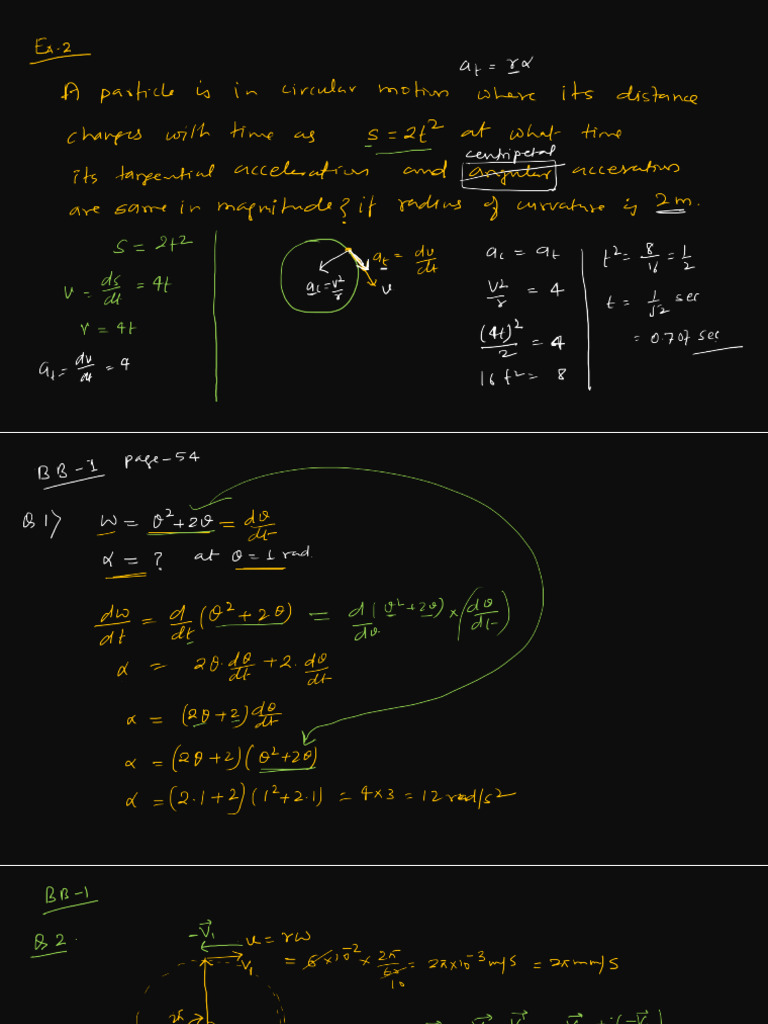 Ex.2
a_t = rα
A particle is in circular motion where its distance
changes with time as s = 2t² at what time
centripetal
its tangential acceleration and angular acceration
are same in magnitude? if radius of curvature is 2m.
S = 2t²
v = ds/dt = 4t
v = 4t
a_t = dv/dt = 4
a_t = dv/dt
a_c = v²/r
v
a_c = a_t
v²/r = 4
(4t)²/2 = 4
16t² = 8
t² = 8/16 = 1/2
t = 1/√2 sec
= 0.707 sec
BB-1 page-54
Q1) ω = θ²+2θ = dθ/dt
α = ? at θ = 1 rad.
dω/dt = d/dt (θ² + 2θ) = d(θ²+2θ)/dθ × (dθ/dt)
α = 2θ.dθ/dt + 2.dθ/dt
α = (2θ+2)dθ/dt
α = (2θ+2)(θ²+2θ)
α = (2.1+2)(1²+2.1) = 4×3 = 12 rad/s²
BB-1
Q2.
-V⃗₁
u = rω
V₁
= 6×10⁻² × 2π/60 = 2π×10⁻³ m/s = 2π mm/s
10